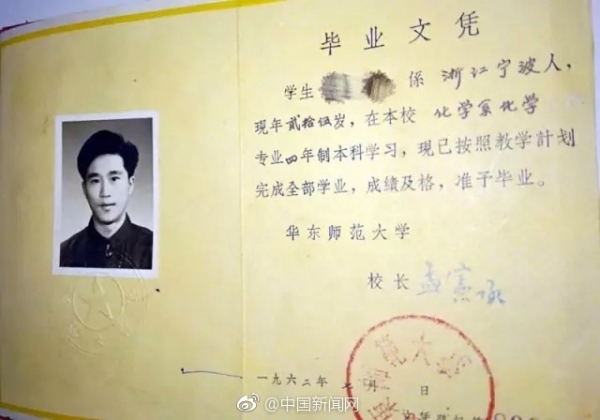 毕业文凭
学生 係 浙江宁波人,
现年贰拾伍岁，在本校 化学系化学
专业四年制本科学习，现已按照教学計划
完成全部学业，成绩及格，准予毕业。
华东师范大学
校长 孟宪承
一九六二年 月 日
範大学
@中国新闻网